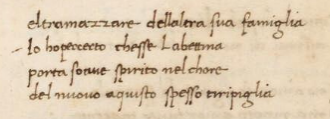 el tramazzare dellaltra sua famiglia
Io ho percerto chesse Labecina
porta soave spirito nel chore
del nuovo aquisto spesso tiripiglia